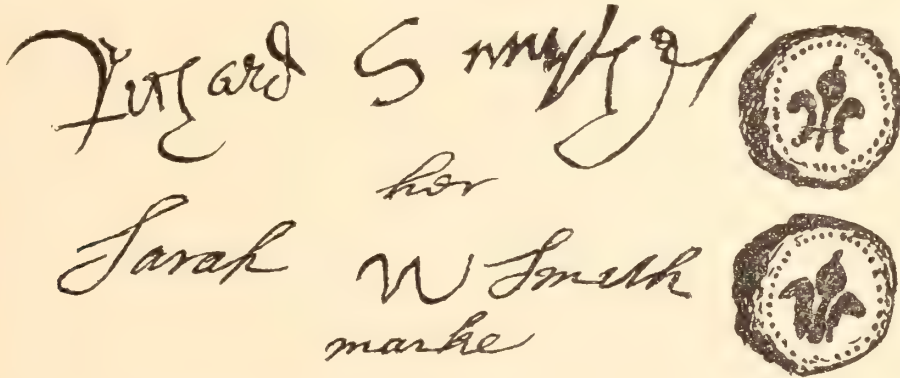 Richard Smythe
her
Sarah W Smith
marke